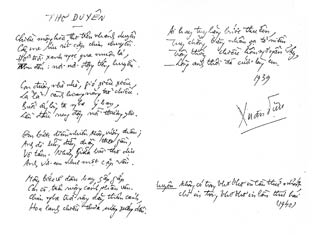 THƠ DUYÊN
Chiều mộng hòa thơ trên nhánh duyên
Cây me ríu rít cặp chim chuyền
Đổ trời xanh ngọc qua muôn lá
Thu đến nơi nơi động tiếng huyền.
Con đường nhỏ nhỏ, gió xiêu xiêu
Lả lả cành hoang nắng trở chiều.
Buổi ấy lòng ta nghe ý bạn
Lần đầu rung động nỗi thương yêu.
Em bước điềm nhiên không vướng chân;
Anh đi lững đững chẳng theo gần,
Vô tâm - Nhưng giữa bài thơ dịu
Anh với em như một cặp vần.
Mây biếc về đâu bay gấp gấp
Con cò trên ruộng cánh phân vân.
Chim nghe trời rộng dang thêm cánh
Hoa lạnh chiều thưa, sương xuống dần.
Ai hay tuy lặng bước thu êm,
Tuy chẳng băng nhân gạ tỏ niềm,
Trông thấy chiều hôm ngơ ngẩn vậy,
Lòng anh thôi đã cưới lòng em.
1939
Xuân Diệu